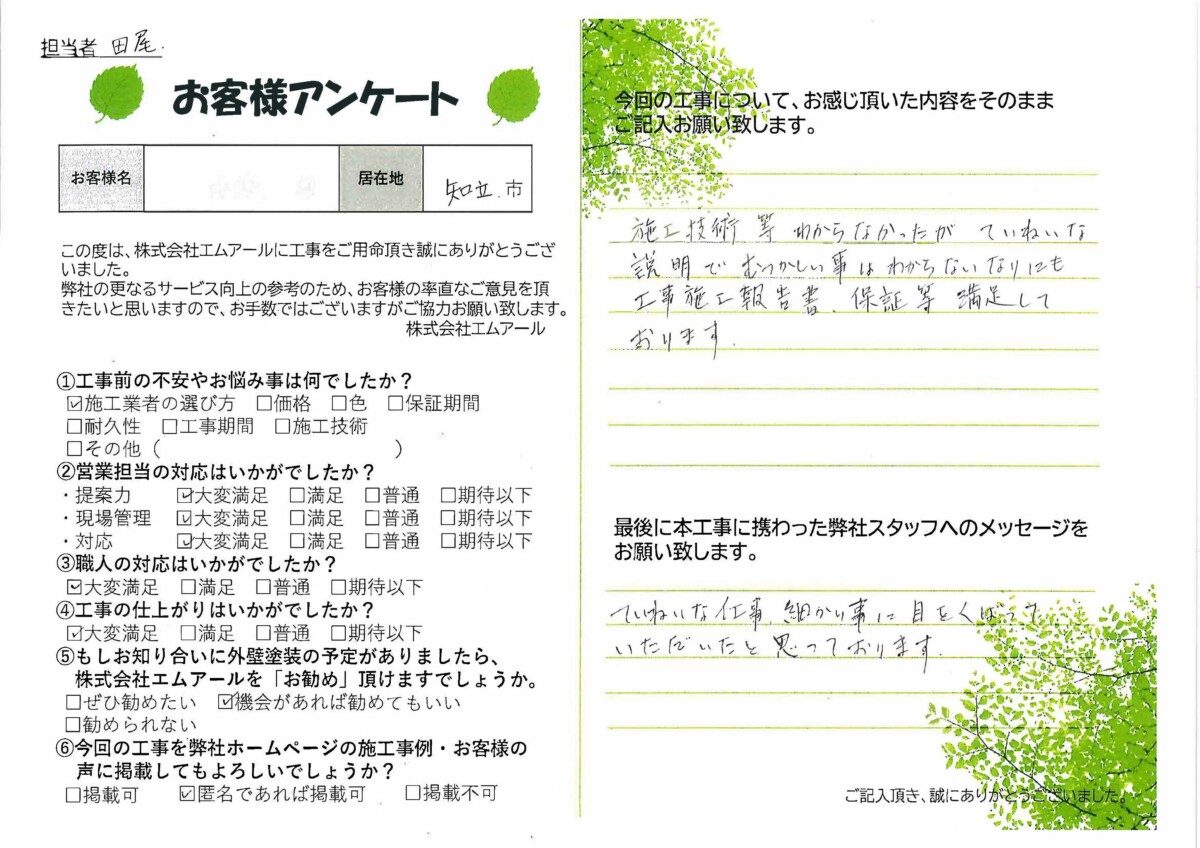 担当者 田尾.
お客様アンケート
お客様名
居在地
知立.市
この度は、株式会社エムアールに工事をご用命頂き誠にありがとうござ
いました。
弊社の更なるサービス向上の参考のため、お客様の率直なご意見を頂
きたいと思いますので、お手数ではございますがご協力お願い致します。
株式会社エムアール
①工事前の不安やお悩み事は何でしたか？
☑施工業者の選び方 □価格 □色 □保証期間
□耐久性 □工事期間 □施工技術
□その他（ ）
②営業担当の対応はいかがでしたか？
・提案力 ☑大変満足 □満足 □普通 □期待以下
・現場管理 ☑大変満足 □満足 □普通 □期待以下
・対応 ☑大変満足 □満足 □普通 □期待以下
③職人の対応はいかがでしたか？
☑大変満足 □満足 □普通 □期待以下
④工事の仕上がりはいかがでしたか？
☑大変満足 □満足 □普通 □期待以下
⑤もしお知り合いに外壁塗装の予定がありましたら、
株式会社エムアールを「お勧め」頂けますでしょうか。
□ぜひ勧めたい ☑機会があれば勧めてもいい
□勧められない
⑥今回の工事を弊社ホームページの施工事例・お客様の
声に掲載してもよろしいでしょうか？
□掲載可 ☑匿名であれば掲載可 □掲載不可
今回の工事について、お感じ頂いた内容をそのまま
ご記入お願い致します。
施工技術等 わからなかったが ていねいな
説明で むつかしい事は わからないなりにも
工事施工報告書、保証等 満足して
おります.
最後に本工事に携わった弊社スタッフへのメッセージを
お願い致します。
ていねいな仕事、細かい事に目をくばって
いただいたと思っております.
ご記入頂き、誠にありがとうございました。